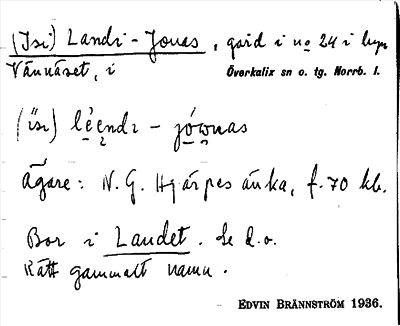 (Isi) Landi-Jonas, gård i no 24 i byn
Vännäset, i Överkalix sn o. tg. Norrb. l.
(i̋si) lèendı - jównas
Ägare: N. G. Hjärpes änka, f. 70 kb.
Bor i Landet. Se d.o.
Rätt gammalt namn.
EDVIN BRÄNNSTRÖM 1936.